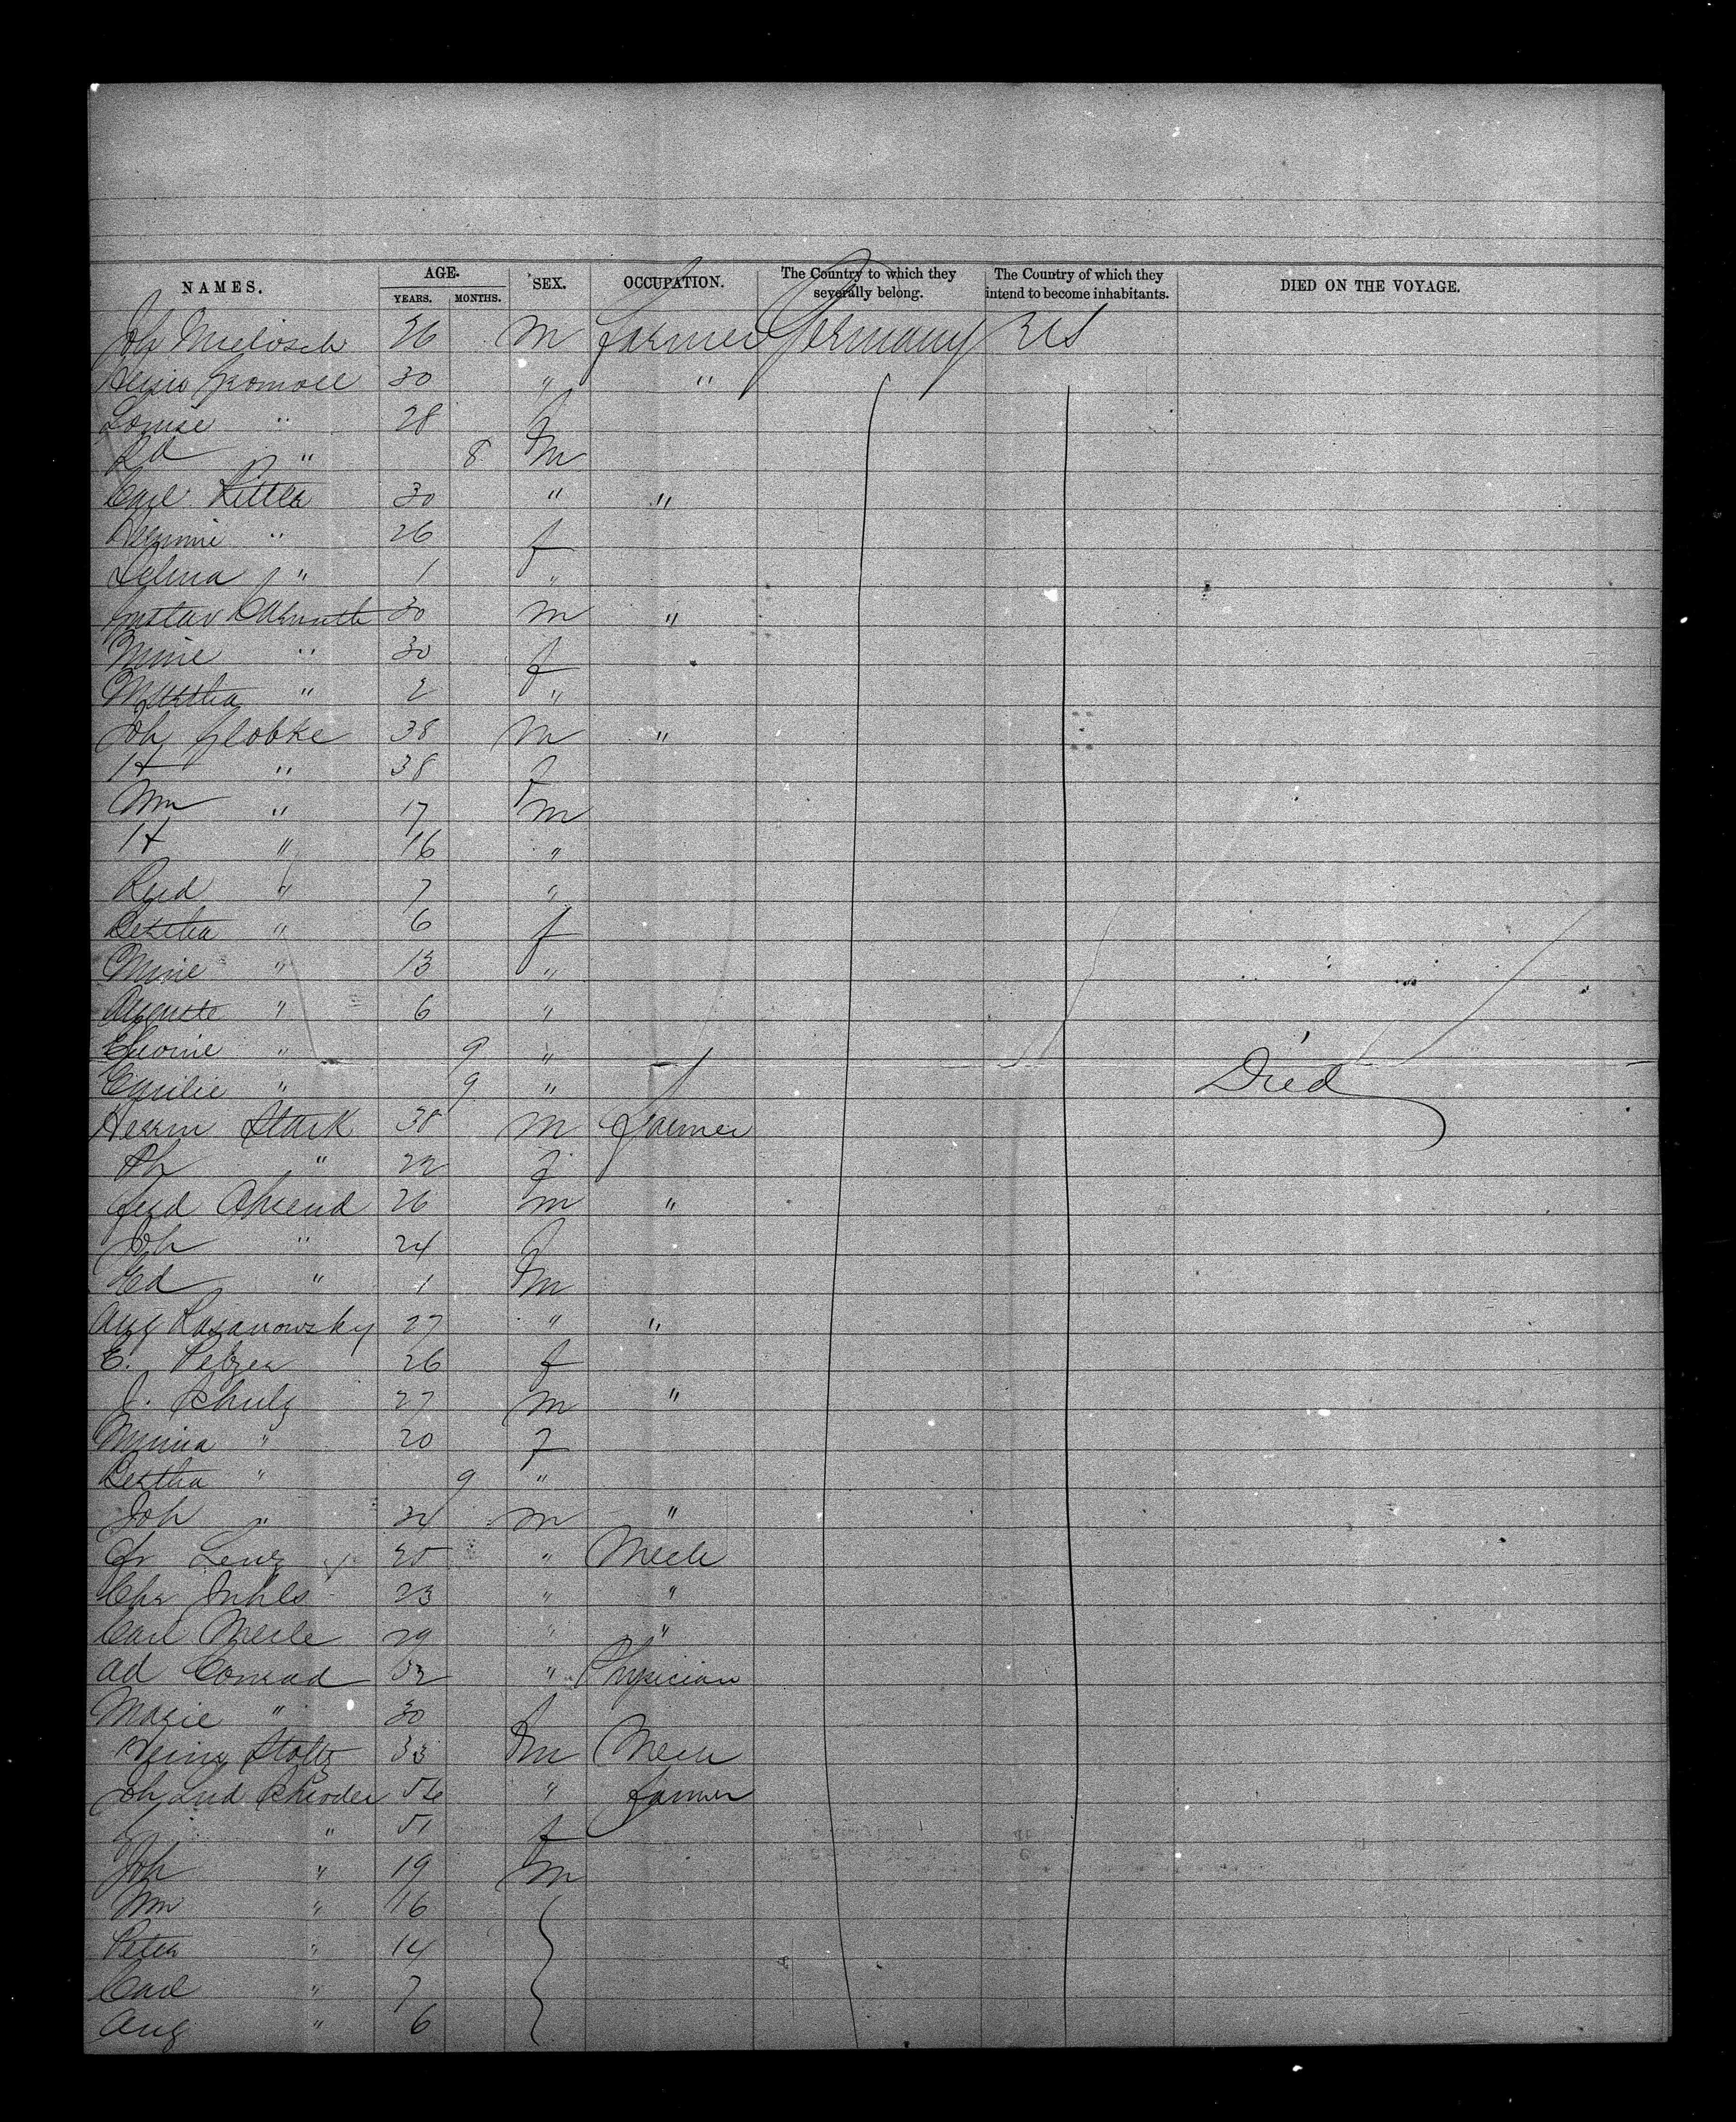 NAMES. AGE. YEARS. MONTHS. SEX. OCCUPATION. The Country to which they severally belong. The Country of which they intend to become inhabitants. DIED ON THE VOYAGE.
Joh 26 m Farmer Germany US
30 " "
Louise " 28 f
Rd " 8 m
Carl Ritter 30 " "
Hermine " 26 f
Selma " 1 "
Gustav 30 m "
Mine " 30 f
Martha " 2 "
Joh Globke 38 m "
H " 38 f
Wm " 17 m
H " 16 "
" 7 "
Bertha " 6 f
Mine " 13 "
Auguste " 6 "
" 9 "
Emilie " 9 " Died
Herrm Stark 38 m Farmer
" 22 f
Ferd Ahrend 26 m "
Joh " 24 f
Ed " 1 m
Aug Rasanowsky 27 " "
E. Pelzer 26 f
J. Schulz 27 m "
Minna " 20 f
Bertha " 9 "
Joh " m "
Fr Lenz 25 " Mech
Chr 23 " "
Carl Merle 29 " "
Ad Conrad 32 " Physician
Marie " 30 f
Heinr Stoltz 33 m Mech
Joh Lud Schroder " Farmer
" 51 f
Joh " 19 m
Wm " 16
Peter " 14
Carl " 7
Aug " 6